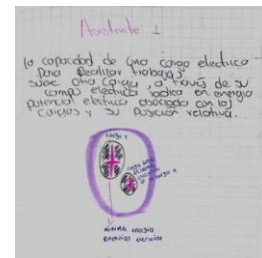 Asistente 1
la capacidad de una carga electrica
para realizar trabajos
sobre otra carga, a través de su
campo electrico radica en energia
potencial electrica asociada con las
cargas y su posición relativa.
carga 1
carga
minima energia
potencial